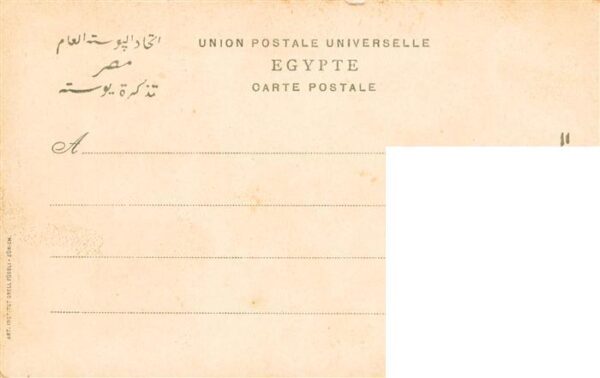 اتحاد البوسته العام
مصر
تذكرة بوسته
UNION POSTALE UNIVERSELLE
EGYPTE
CARTE POSTALE
A
ART. INSTITUT ORELL FÜSSLI - ZÜRICH.